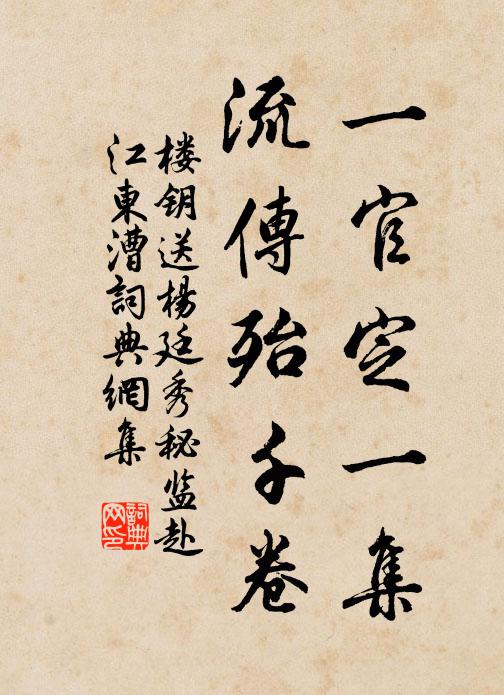 一官定一集
流傳殆千卷
楼钥送楊廷秀秘监赴
江東漕詞典網集
詞典
网印